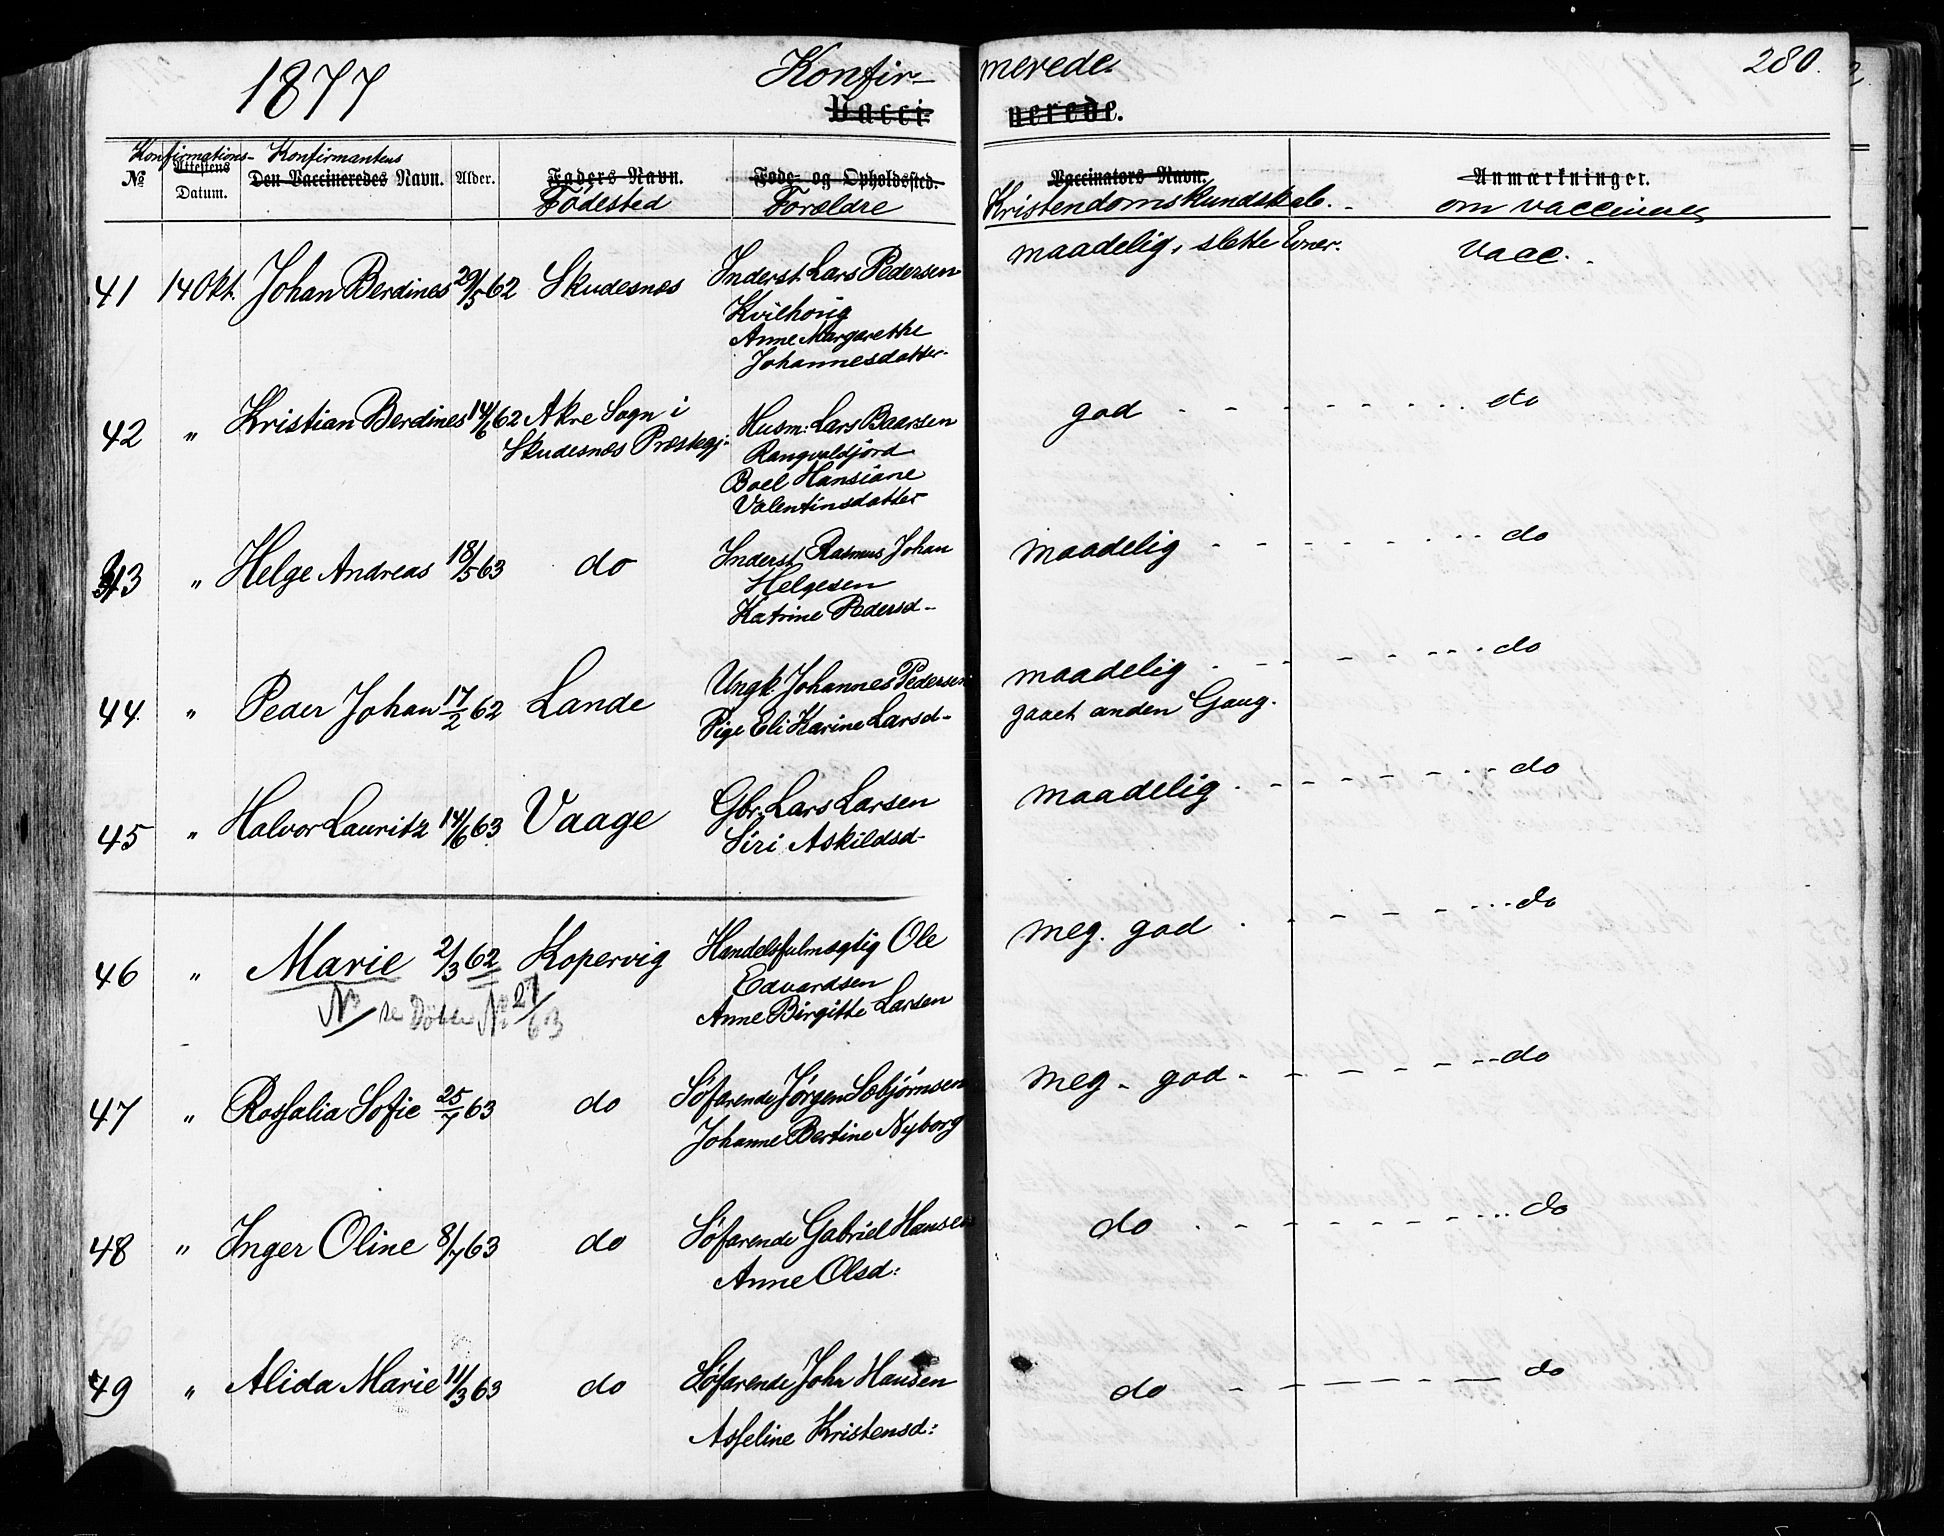 1877 Konfirmerede. 280.
Vaccinerede.
Konfirmations- Konfirmantens
No Attestens Datum. Den Vaccineredes Navn. Alder. Faders Navn. Føde- og Opholdssted. Vaccinators Navn. Anmærkninger.
Fødested Forældre Kristendomskundskab. om vaccineret
41 14 Okt. Johan Berdines 29/5 62 Skudesnes Inderst. Lars Pedersen maadelig, slette Evner. vacc.
Kvilhoug
Anne Margarethe
Johannesdatter
42 " Kristian Berdines 14/6 62 Akre Sogn i Husm: Lars Baarsen god do
Skudesnes Præstegj. Rangvaldjord
Boel Hansiane
Valentinsdatter
43 " Helge Andreas 18/5 63 do Inderst Rasmus Johan maadelig do
Helgesen
Katrine Pedersd-
44 " Peder Johan 17/2 62 Lande Ungk. Johannes Pedersen maadelig do
Pige Eli Karine Larsd- gaaet anden Gang.
45 " Halvor Lauritz 14/6 63 Vaage Gbr. Lars Larsen maadelig do
Siri Askildsd-
46 " Marie 2/3 62 Kopervig Handelsfulmægtig Ole meg. god do
Edvardsen
NB se Døbte No 27/63 Anne Birgitte Larsen
47 " Rossalia Sofie 25/7 63 do Søfarende Jørgen Sebjørnsen meg - god - do
Johanne Bertine Nyborg
48 " Inger Oline 8/7 63 do Søfarende Gabriel Hansen do do
Anne Olsd:
49 " Alida Marie 11/3 63 do Søfarende John Hansen do do
Asseline Kristensd: